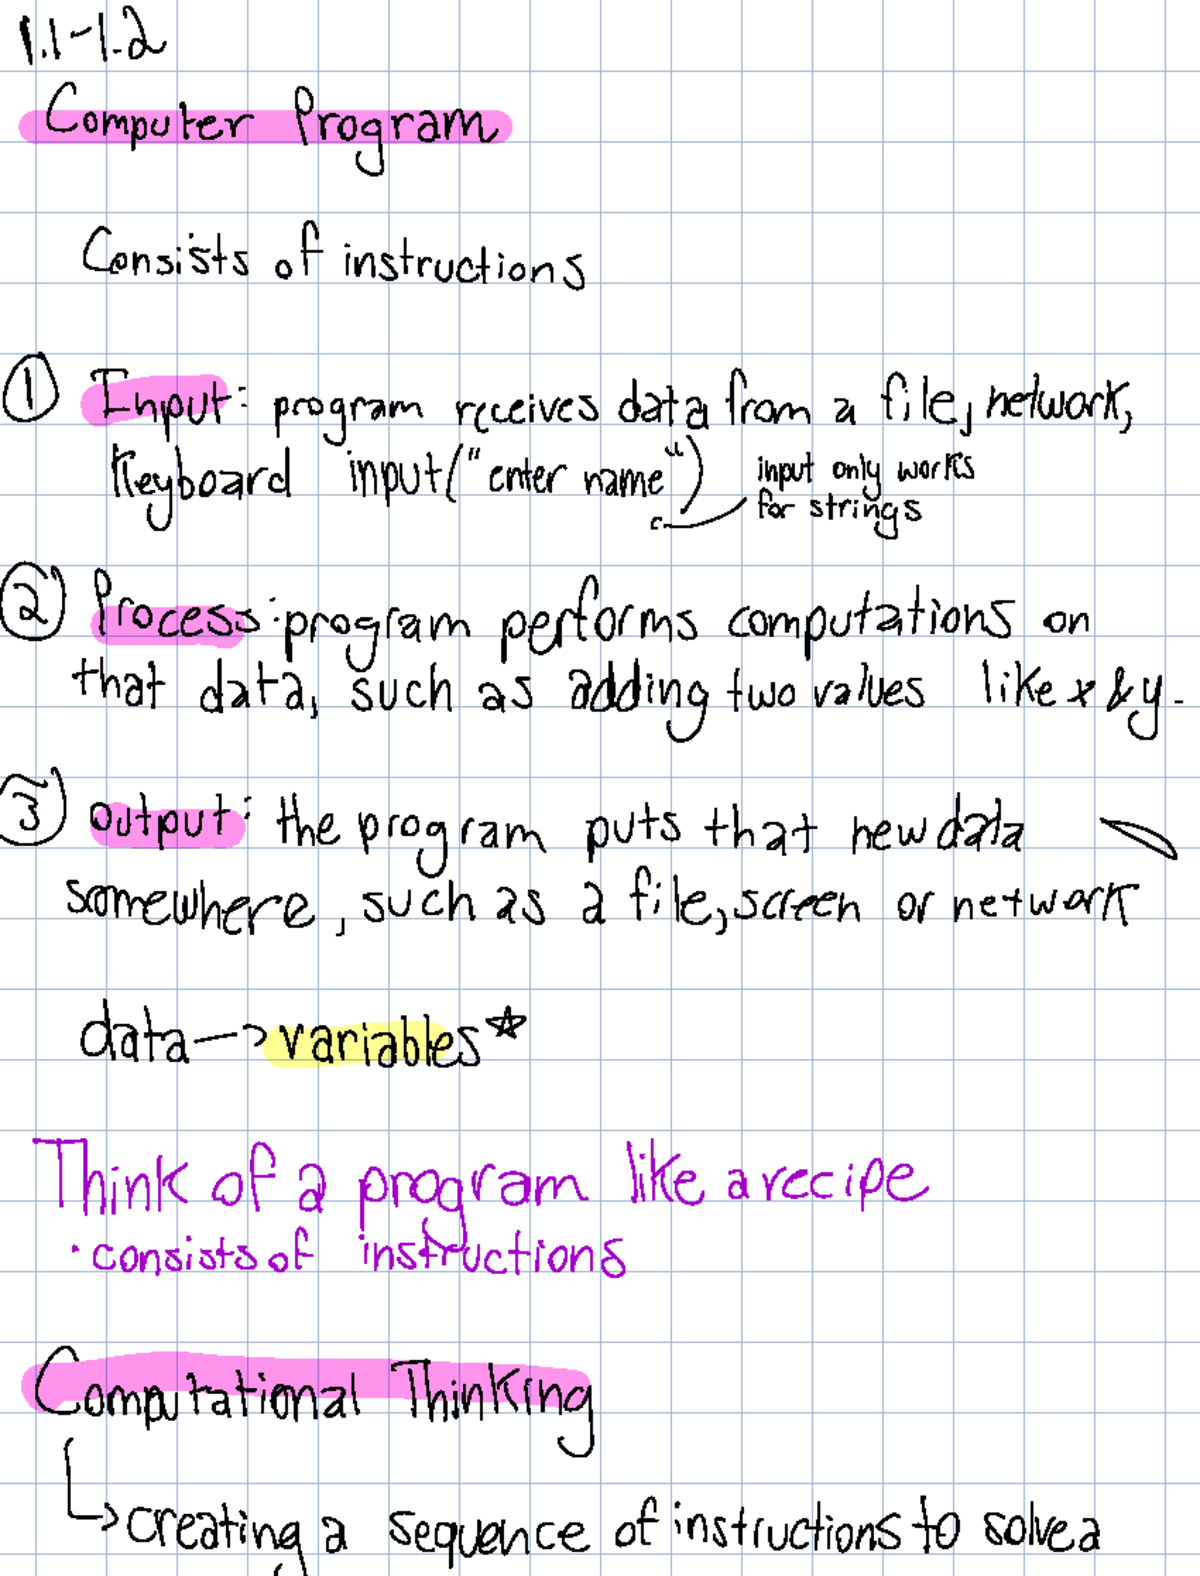 1.1-1.2
Computer Program
Consists of instructions
① Input: program receives data from a file, network,
Keyboard input("enter name") input only works
for strings
② Process: program performs computations on
that data, such as adding two values like x & y.
③ output: the program puts that new data
somewhere, such as a file, screen or network
data -> variables*
Think of a program like a recipe
· consists of instructions
Computational Thinking
↳ creating a sequence of instructions to solve a